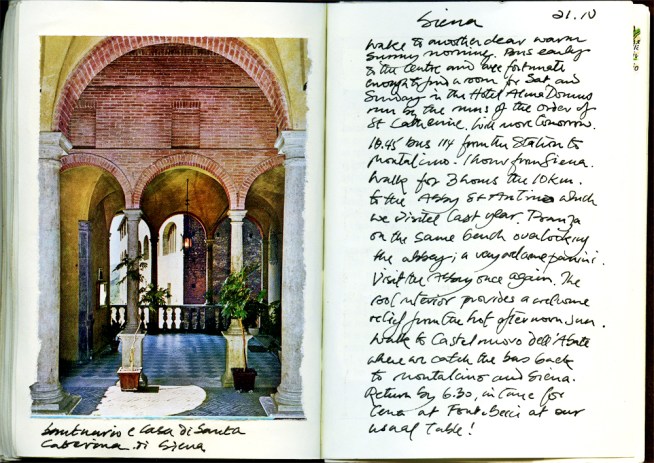 Santuario e Casa di Santa
Caterina di Siena
Siena 21.10
Wake to another clear warm
Sunny morning. Bus early
to the Centre and are fortunate
enough to find a room for Sat and
Sunday in the Hotel Alma Domus
run by the nuns of the order of
St Catherine. Will move tomorrow.
10.45 bus 114 from the Station to
Montalcino. 1 hour from Siena.
Walk for 3 hours the 10 km.
to the Abbey St Antimo which
we visited last year. Pranza
on the same bench overlooking
the abbey; a very welcome panini.
Visit the Abbey once again. The
cool interior provides a welcome
relief from the hot afternoon sun.
Walk to Castelnuovo dell'Abate
where we catch the bus back
to Montalcino and Siena.
Return by 6.30, in time for
Cena at Fonte Becci at our
usual table!